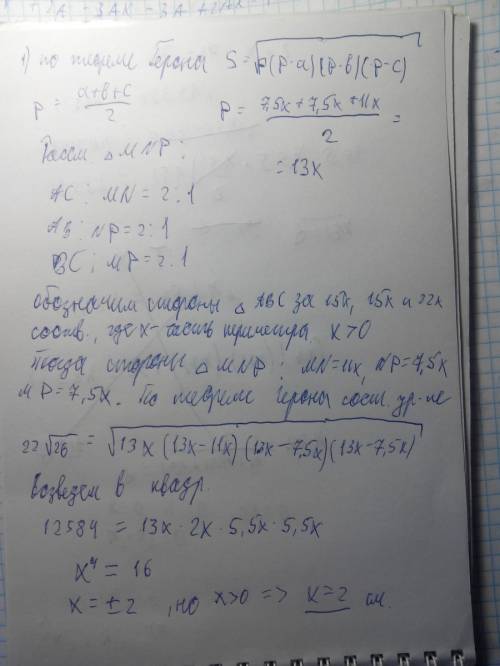 1) по теореме Герона S = √p(p-a)(p-b)(p-c)
p = a+b+c / 2 p = 7,5x + 7,5x + 11x / 2 =
= 13x
Рассм △ MNP:
AC : MN = 2 : 1
AB : NP = 2 : 1
BC : MP = 2 : 1
обозначим стороны △ ABC за 15x, 15x и 22x
соотв., где x - часть периметра, x > 0
Тогда стороны △ MNP : MN = 11x, NP = 7,5x
MP = 7,5x. По теореме Герона сост. ур-ие
22√26 = √13x (13x - 11x) (13x - 7,5x) (13x - 7,5x)
возведем в квадр.
12584 = 13x · 2x · 5,5x · 5,5x
x⁴ = 16
x = ± 2 , но x > 0 => x = 2 см.